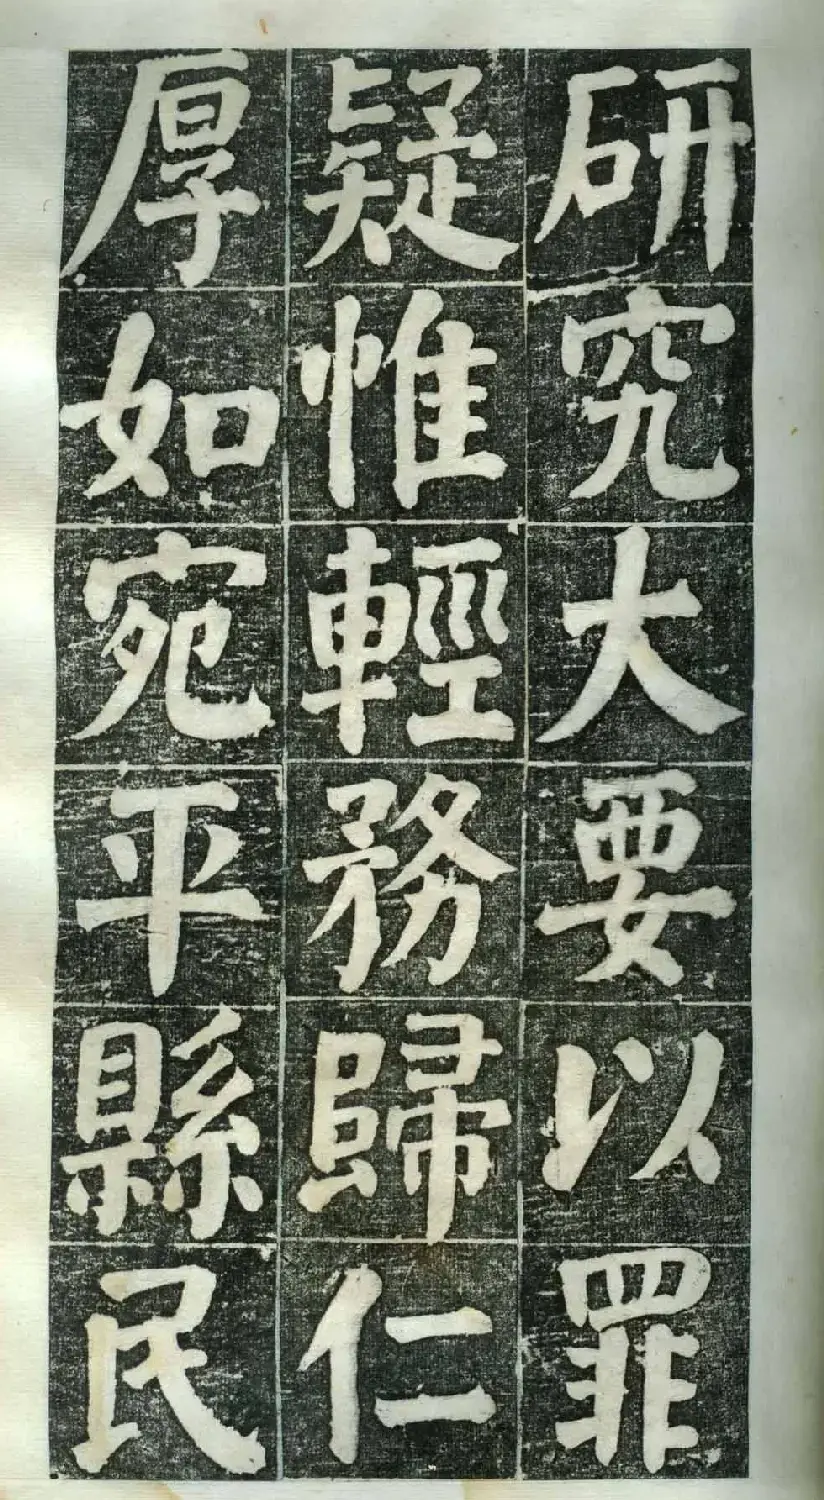 研究大要以罪
疑惟輕務歸仁
厚如宛平縣民